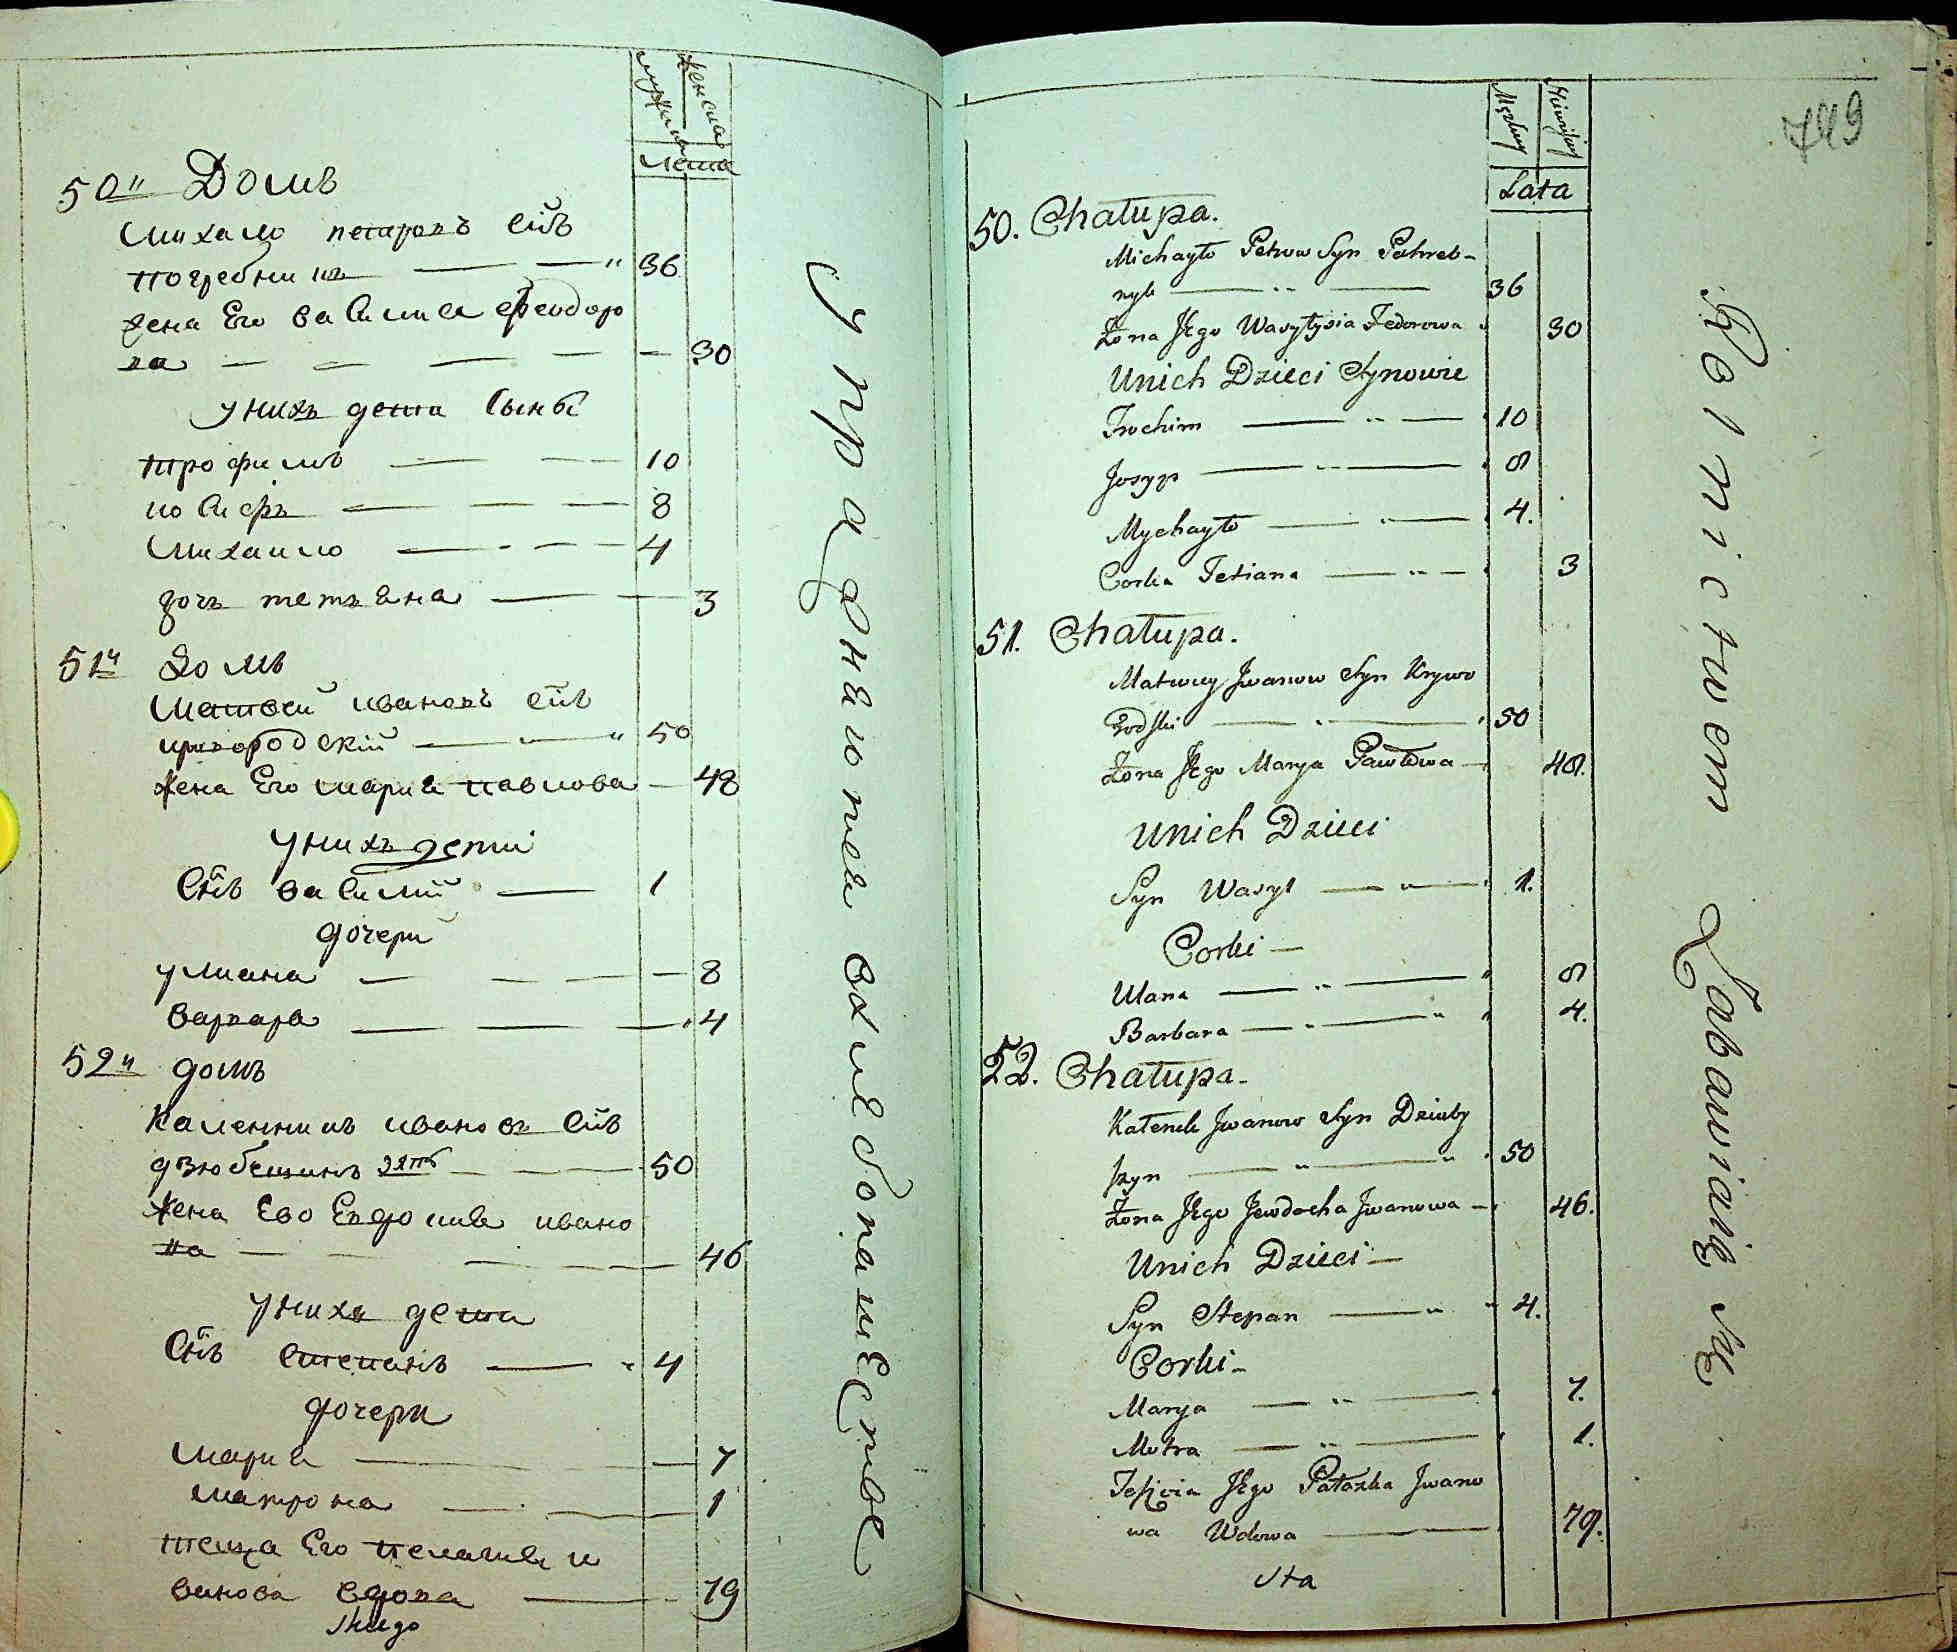 мужска женска
лета
50й Домъ
Михайло петровъ сн̃ъ
погребникъ 36
жена Его василиса феодоро
ва 30
у нихъ дети сыны
трофимъ 10
иосифъ 8
Михаило 4
дочь тетяна 3
51й домъ
Матвей ивановъ сн̃ъ
кривородский 50
жена Его мария павлова 48
у нихъ дети
сн̃ъ василий 1
дочери
улиана 8
варвара 4
52й домъ
каленникъ ивановъ сн̃ъ
дзюбешинъ 50
жена Ево Евдокия ивано
ва 46
у нихъ дети
сн̃ъ степанъ 4
дочери
мария 7
матрона 1
теща Его пелагия и
ванова вдова 79
упражняются в хлебопашестве
749
Męzkiey Żeńskiey
Lata
50. Chałupa.
Michayło Petrow Syn Pohreb-
nyk 36
Żona Jego Wasylysia Fedorowa 30
Unich Dzieci Synowie
Trochim 10
Josyp 8
Mychayło 4.
Corka Tetiana 3
51. Chałupa.
Matwiy Jwanow Syn Krywo
rodski 50
Żona Jego Marya Pawłowa 48.
Unich Dzieci
Syn Wasyl 1.
Corki
Ulana 8
Barbara 4.
52. Chałupa.
Kalenik Jwanow Syn Dziuby
szyn 50
Żona Jego Jewdocha Jwanowa 46.
Unich Dzieci
Syn Stepan 4.
Corki
Marya 7.
Motra 1.
Teścia Jego Pałazka Jwano
wa Wdowa 79.
Rolnictwem Zabawiaią się